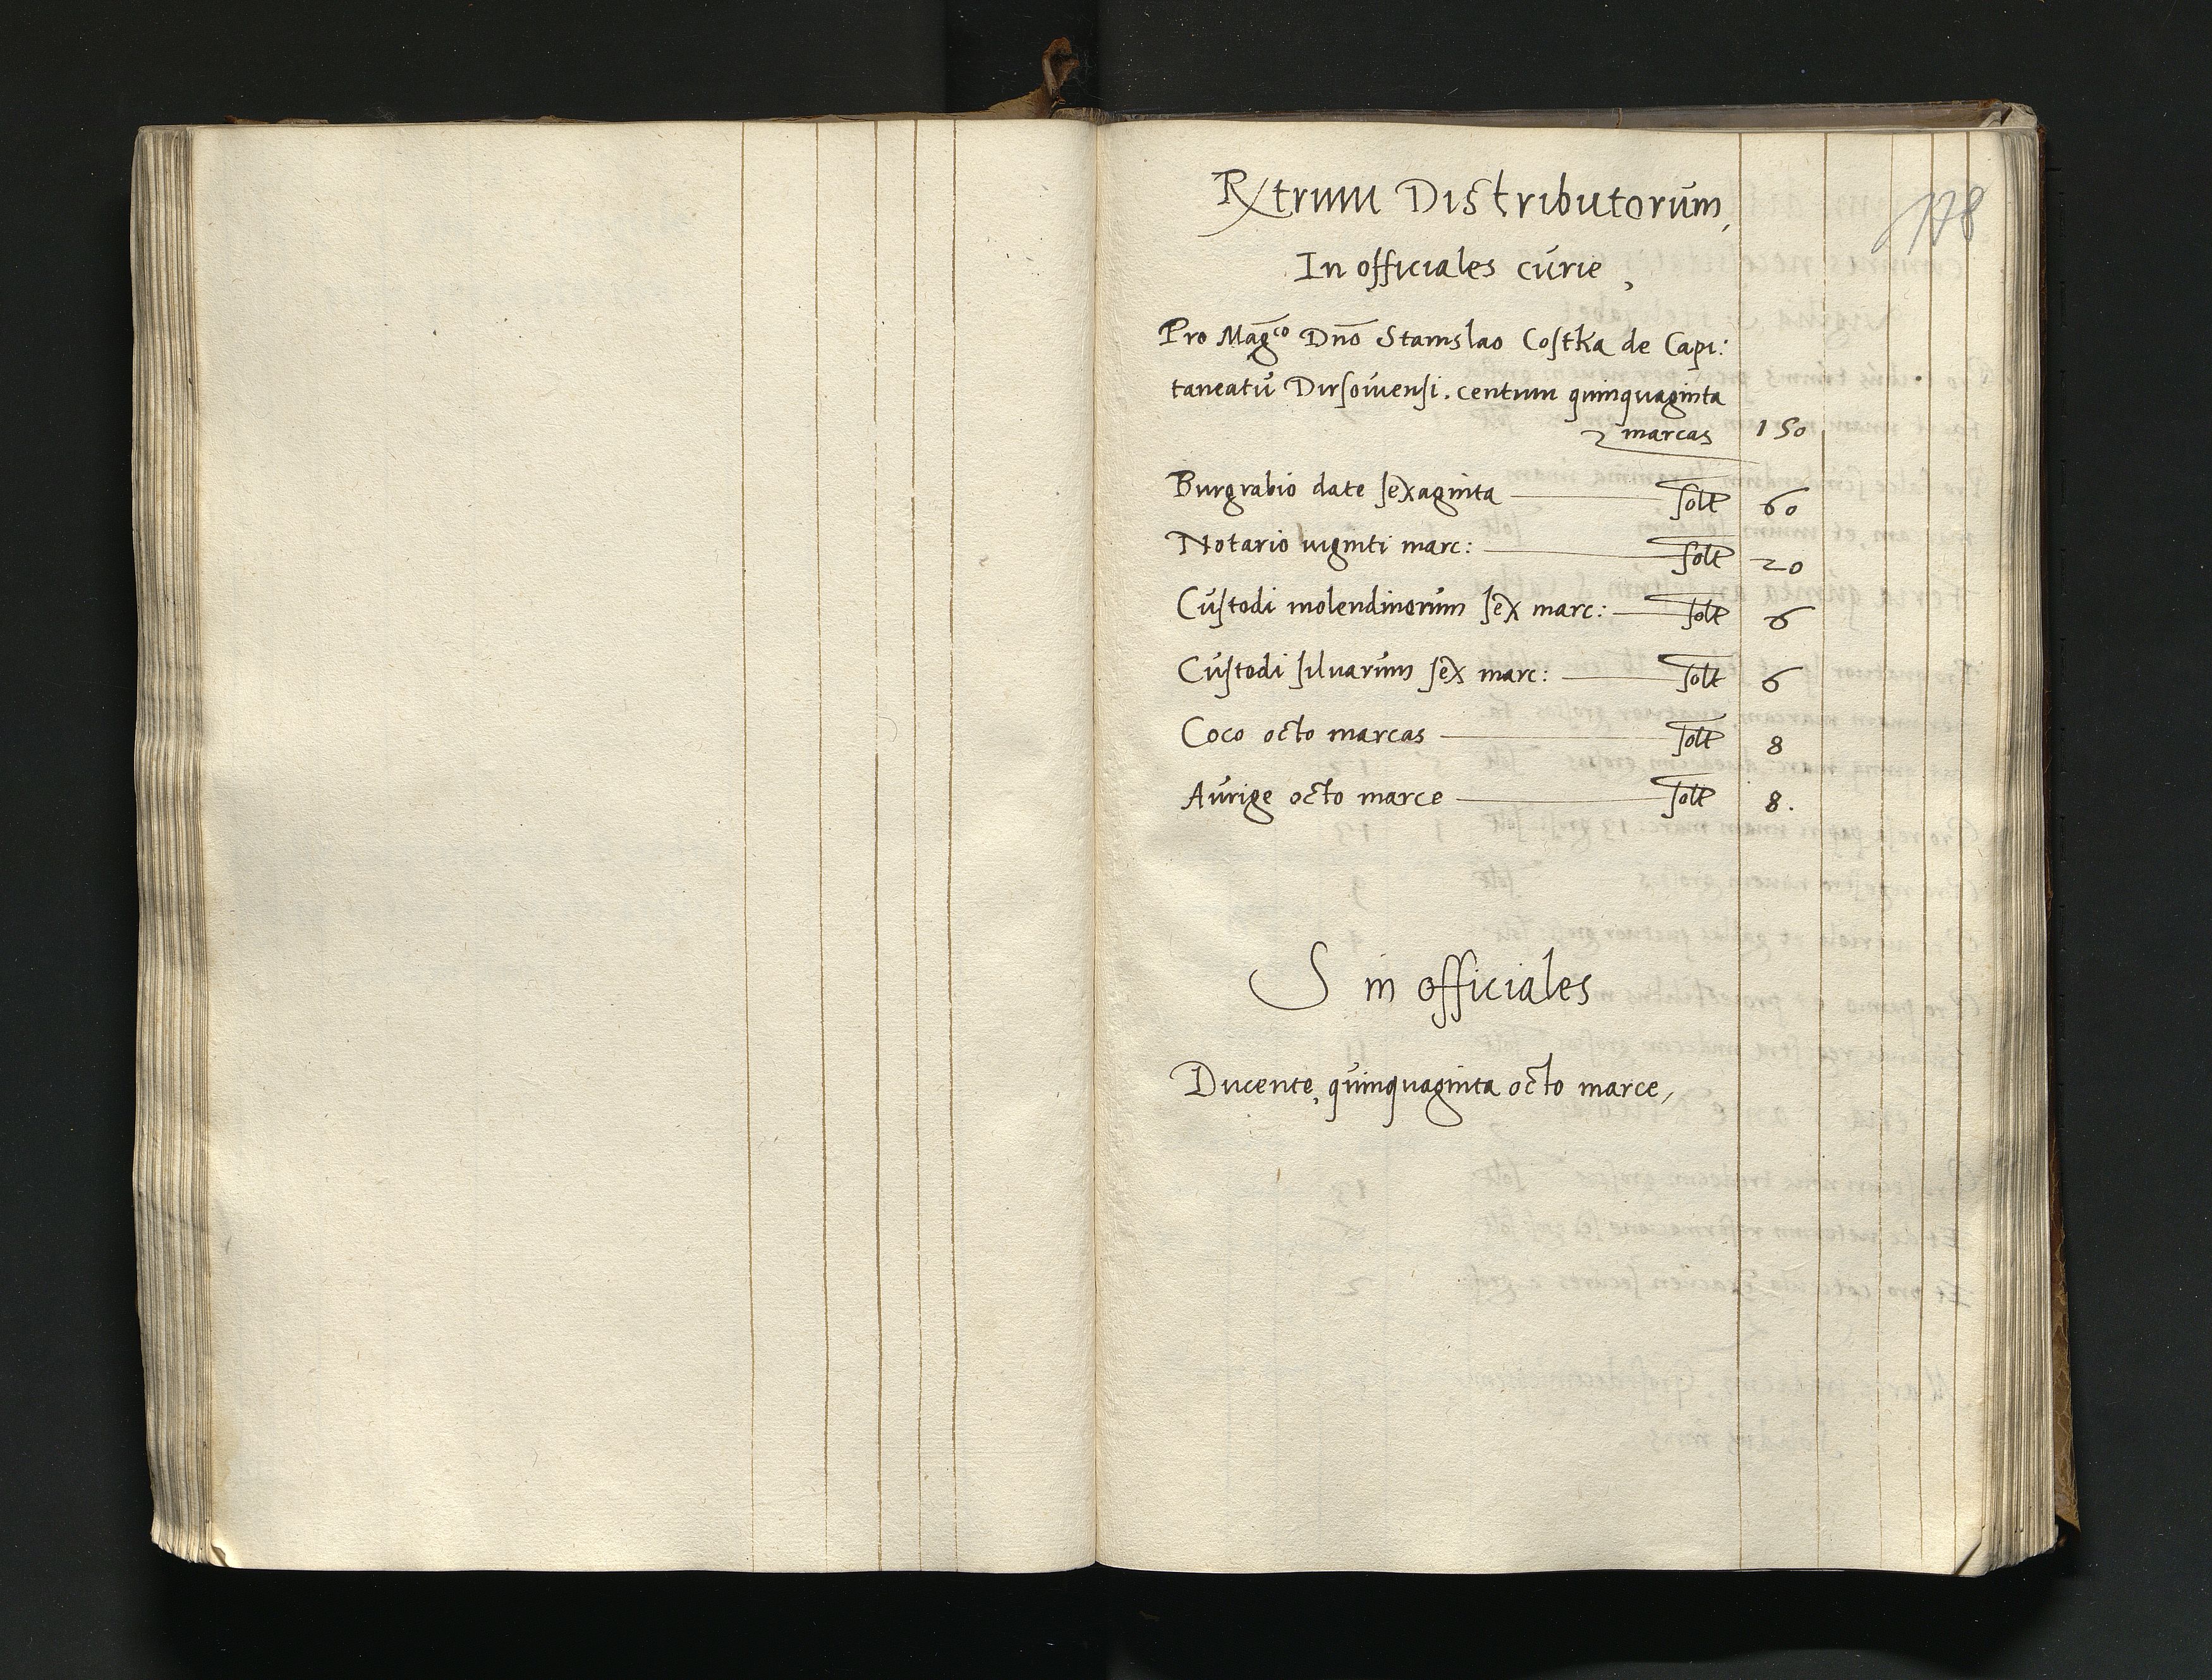 178
Rxtrum Distributorum,
In officiales curie,
Pro Mag͂co Dno͂ Stanislao Costka de Capi:
taneatu Dirsouiensi. centum quinquaginta
marcas 150
Burgrabio date sexaginta solt 60
Notario uiginti marc: solt 20
Custodi molendinorum sex marc: solt 6
Custodi siluarum sex marc: solt 6
Coco octo marcas solt 8
Aurige octo marce solt 8.
S in officiales
Ducente, quinquaginta octo marce,